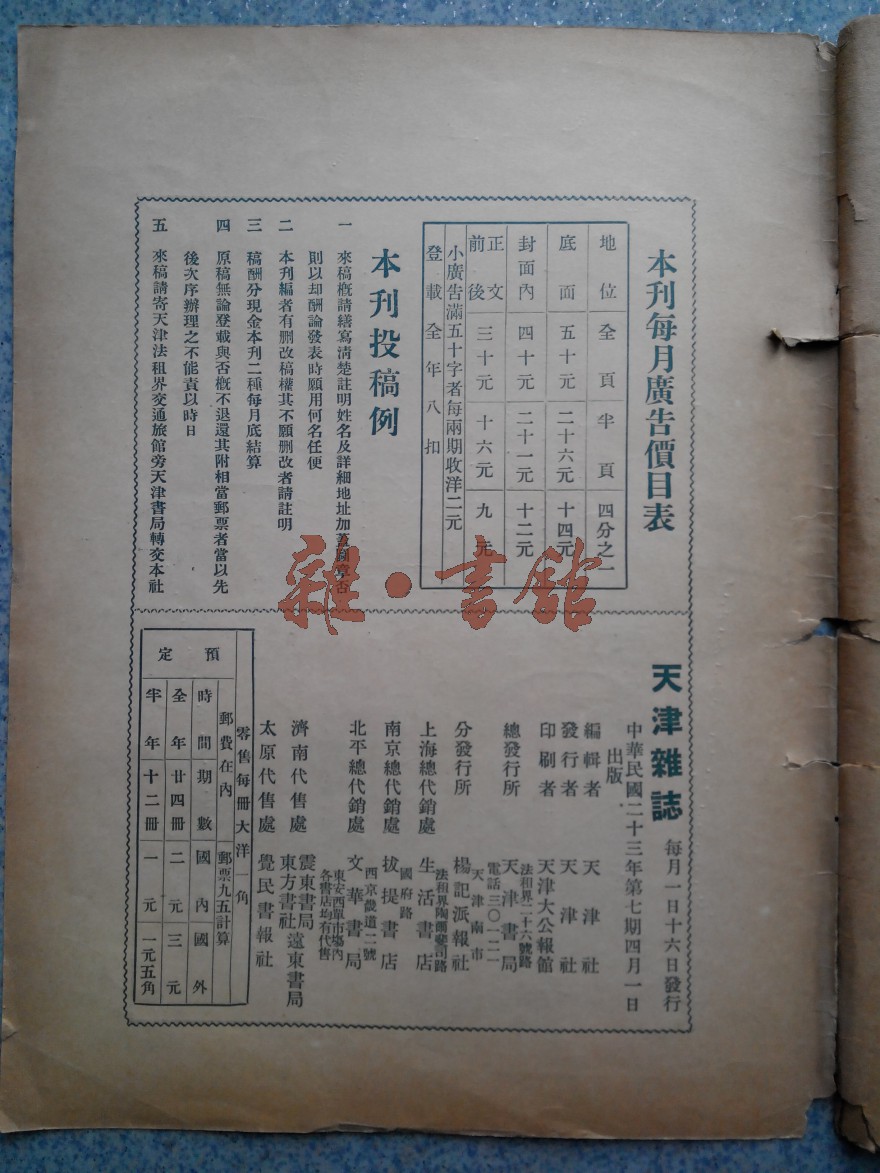 本刊每月廣告價目表
地位 全頁 半頁 四分之一
底面 五十元 二十六元 十四元
封面內 四十元 二十一元 十二元
正文前後 三十元 十六元 九元
小廣告滿五十字者每兩期收洋二元
登載全年八扣
本刊投稿例
一 來稿概請繕寫清楚註明姓名及詳細地址加蓋圖章否
則以却酬論發表時願用何名任便
二 本刊編者有刪改稿權其不願刪改者請註明
三 稿酬分現金本刊二種每月底結算
四 原稿無論登載與否概不退還其附相當郵票者當以先
後次序辦理之不能責以時日
五 來稿請寄天津法租界交通旅館旁天津書局轉交本社
天津雜誌 每月一日十六日發行
中華民國二十三年第七期四月一日
出版
編輯者 天津社
發行者 天津社
印刷者 天津大公報館
法租界二十六號路
總發行所 天津書局
電話三〇一二一
天津南市
分發行所 楊記派報社
法租界陶爾斐司路
上海總代銷處 生活書店
國府路
南京總代銷處 拔提書店
西京畿道二號
北平總代銷處 文華書局
東安西單市場內
各書店均有代售
濟南代售處 震東書局遠東書局
東方書社
太原代售處 覺民書報社
零售每冊大洋一角
預定
郵費在內 郵票九五計算
時間 期數 國內 國外
全年 廿四冊 二元 三元
半年 十二冊 一元 一元五角
雜·書館